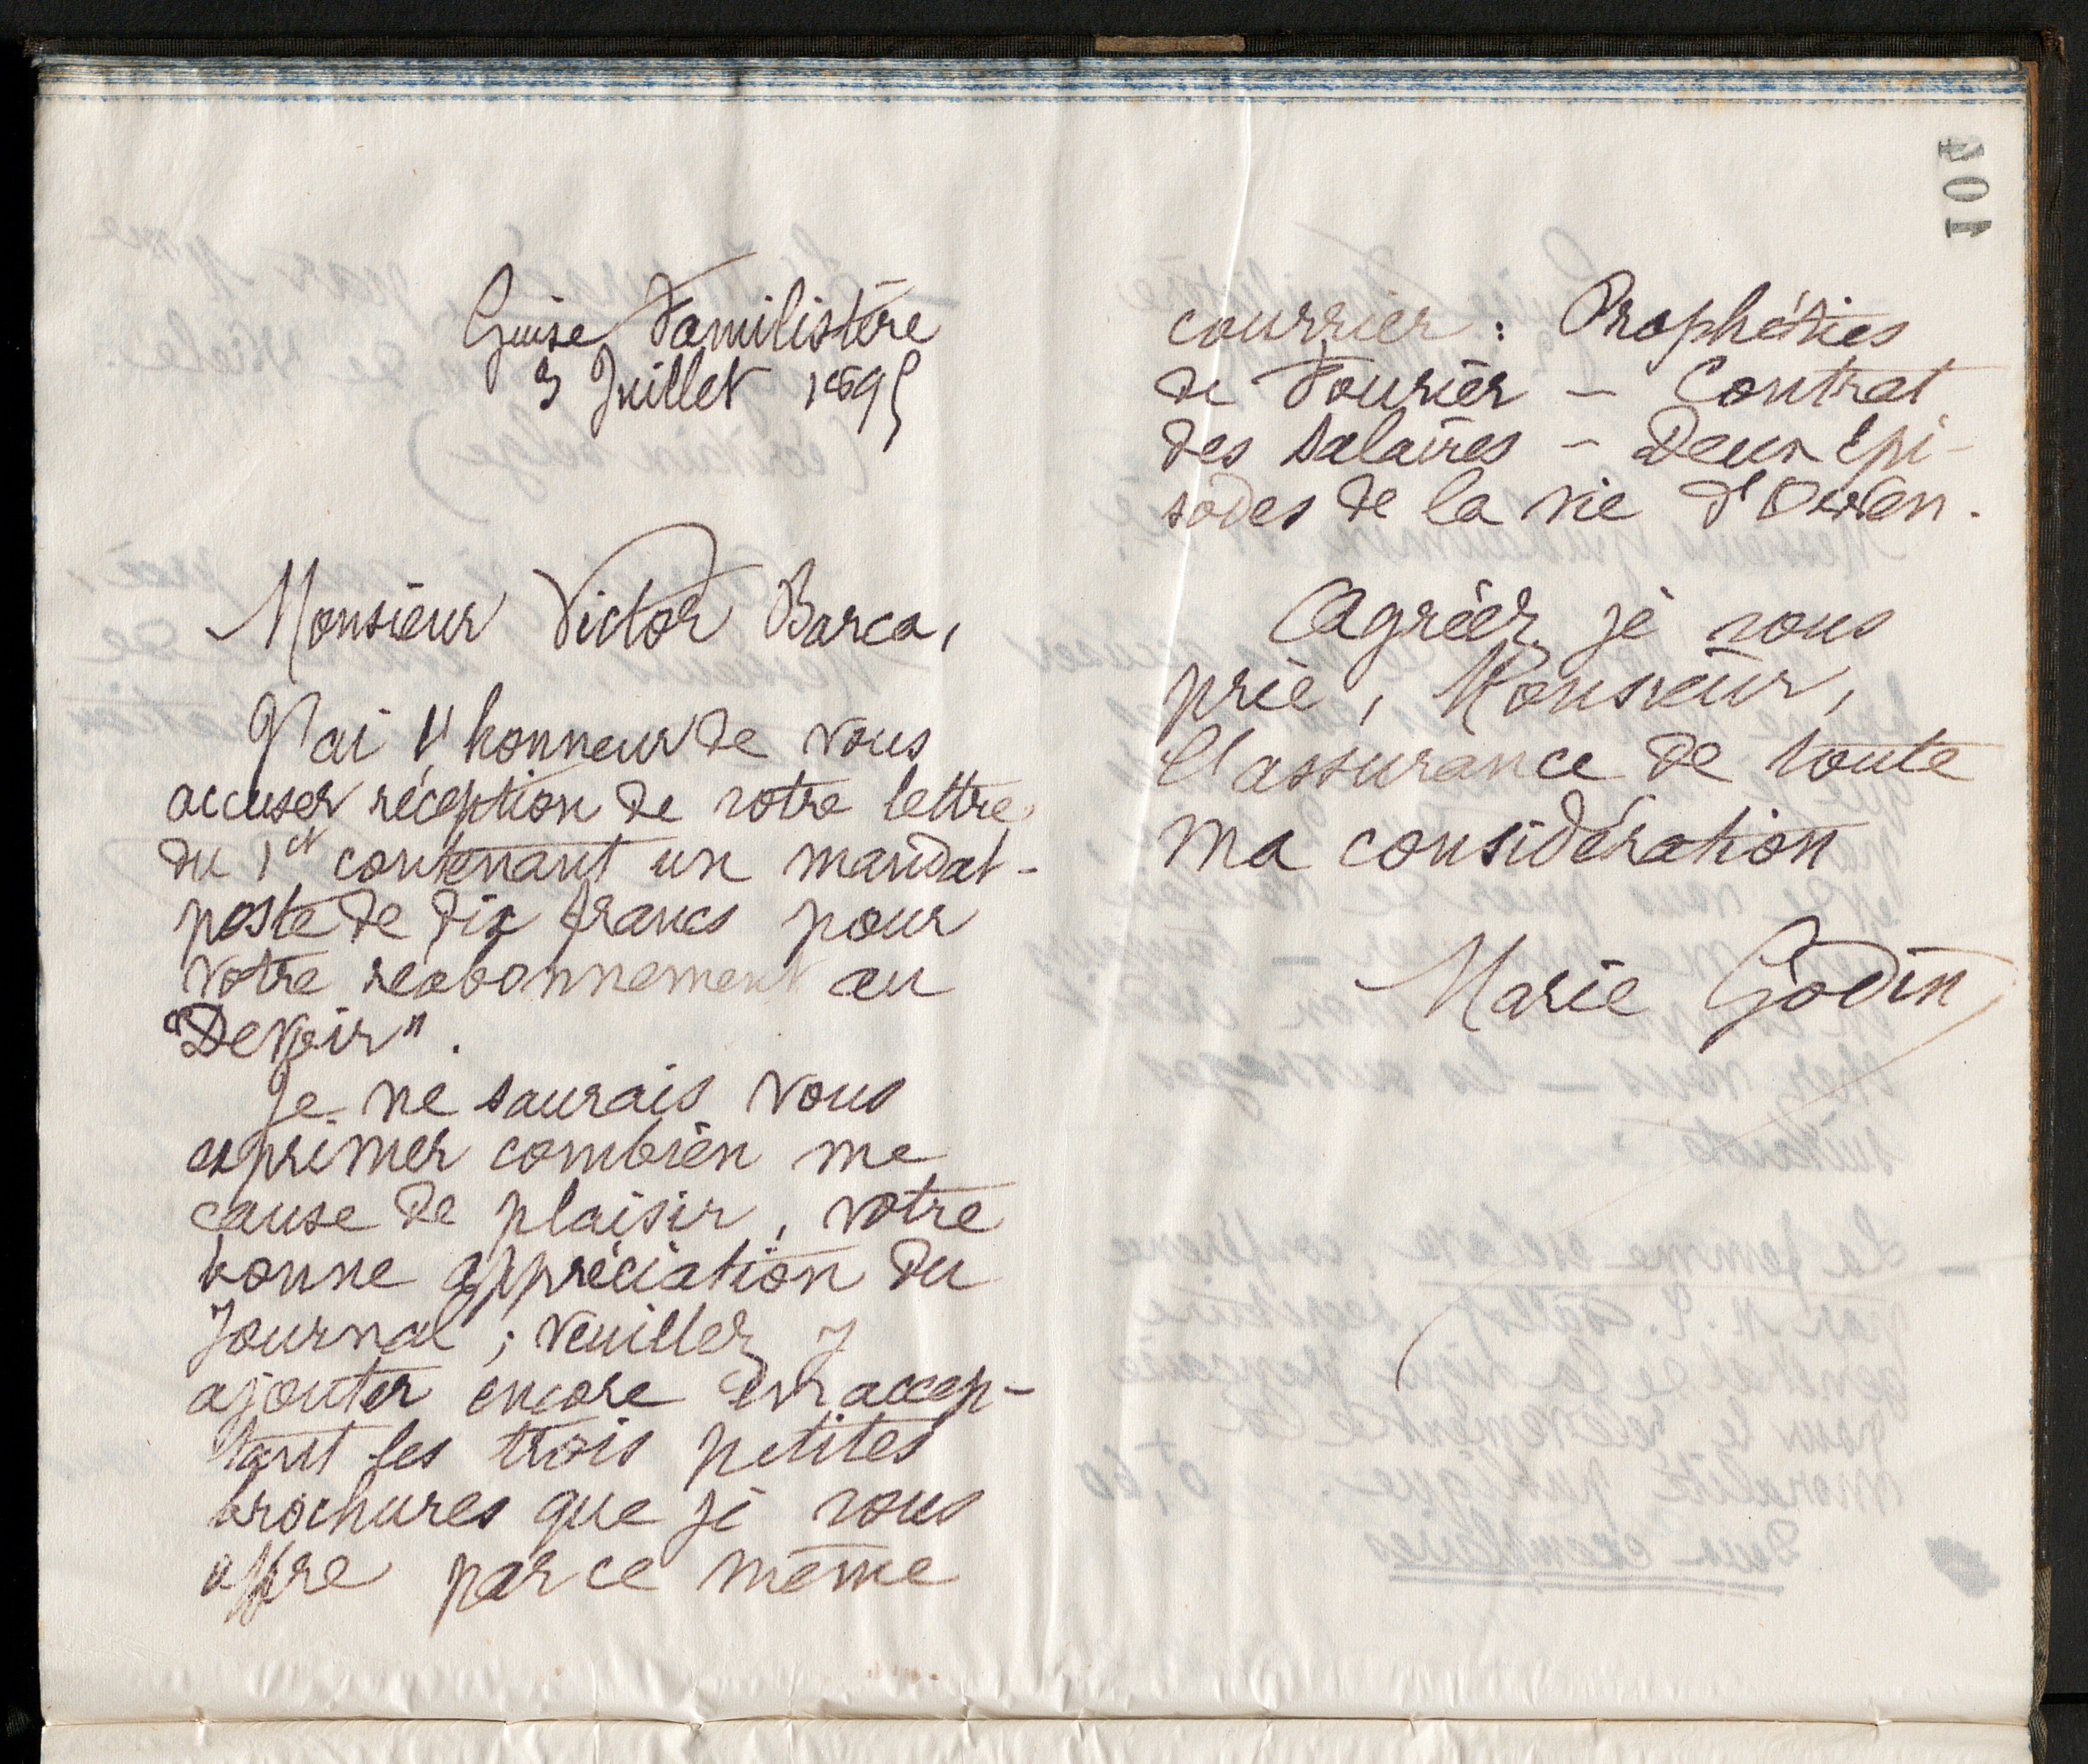 Guise Familistère
3 Juillet 1895
Monsieur Victor Barca,
J'ai l'honneur de vous
accuser réception de votre lettre
du 1er contenant un mandat-
poste de dix francs pour
votre reabonnement au
"Devoir".
Je ne saurais vous
exprimer combien me
cause de plaisir, votre
bonne appréciation du
Journal ; veuillez y
ajouter encore en accep-
tant les trois petites
brochures que je vous
offre par ce même
101
courrier : Prophéties
de Fourier - Contrat
des salaires - Deux épi-
sodes de la vie d'Owen.
Agréer, je vous
prie, Monsieur,
l'assurance de toute
ma considération
Marie Godin